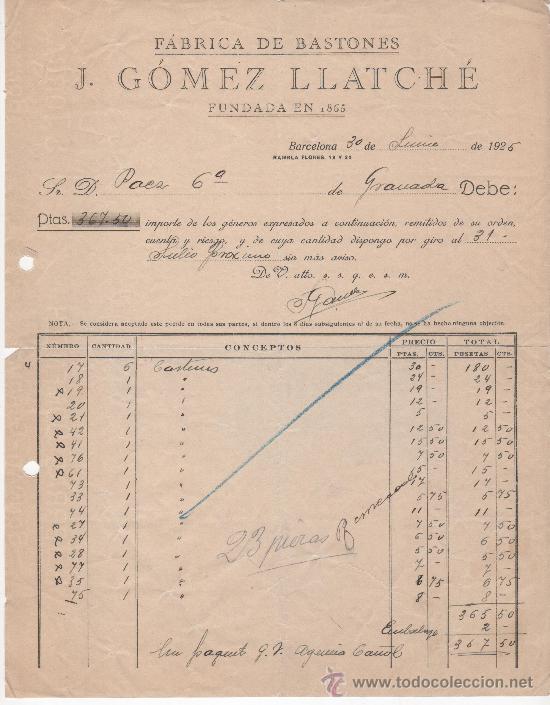 FÁBRICA DE BASTONES
J. GÓMEZ LLATCHÉ
FUNDADA EN 1865
Barcelona 30 de Junio de 1925
RAMBLA FLORES, 18 Y 20
Sr. D. Paez Cª de Granada Debe:
Ptas. 367.50 importe de los géneros expresados a continuación, remitidos de su orden,
cuenta y riesgo, y de cuya cantidad dispongo por giro al 31-
Julio proximo sin más aviso.
De V. atto. s. s. q. e. s. m.
NOTA. Se considera aceptado este pedido en todas sus partes, si dentro los 8 días subsiguientes al de su fecha, no se ha hecho ninguna objeción
NÚMERO CANTIDAD CONCEPTOS PRECIO TOTAL
PTAS. CTS. PESETAS CTS.
17 6 Bastones 30 - 180 -
18 1 " 24 - 24 -
x 19 1 " 19 - 19 -
20 1 " 12 - 12 -
x 21 1 " 5 - 5 -
x 42 1 " 12 50 12 50
x 41 1 " 15 50 15 50
x 76 1 " 7 50 7 50
x 61 1 " 15 - 15 -
73 1 " 17 - 17 -
33 1 " 5 75 5 75
44 1 " 11 - 11 -
27 1 " 7 50 7 50
x 34 1 " 6 50 6 50
x 28 1 " 5 50 5 50
x 77 1 " 7 - 7 -
x 35 1 " 6 75 6 75
75 1 " 8 - 8 -
23 piezas
365 50
Embalage 2 -
367 50
Un paquet G. V. Agencia
www.todocoleccion.net